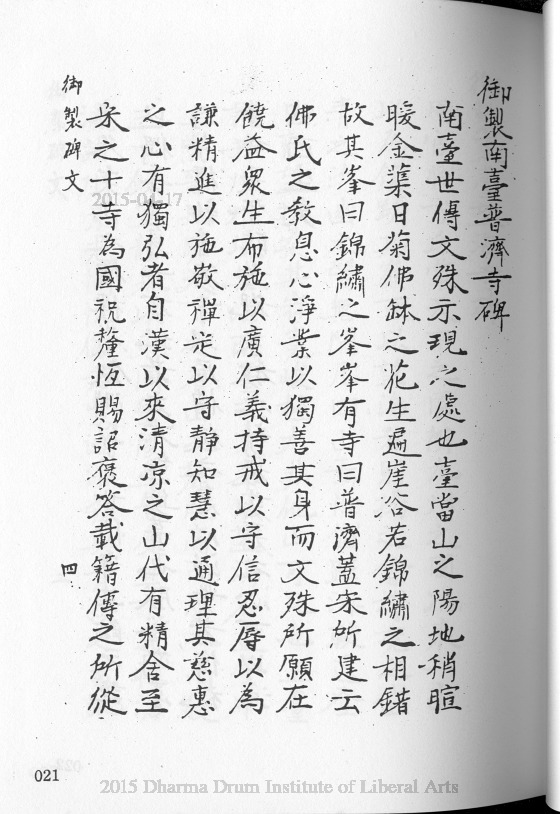 御製南臺普濟寺碑
南臺世傳文殊示現之處也臺當山之陽地稍暄
暖金蕖日菊佛鉢之花生遍崖谷若錦繡之相錯
故其峯曰錦繡之峯峯有寺曰普濟蓋宋所建云
佛氏之教息心淨業以獨善其身而文殊所願在
饒益衆生布施以廣仁義持戒以守信忍辱以為
謙精進以施敬禪定以守靜知慧以通理其慈惠
之心有獨弘者自漢以來清凉之山代有精舍至
宋之十寺為國祝釐恆賜詔褒答載籍傳之所從
御製碑文
四
021
2015-04-17
2015 Dharma Drum Institute of Liberal Arts